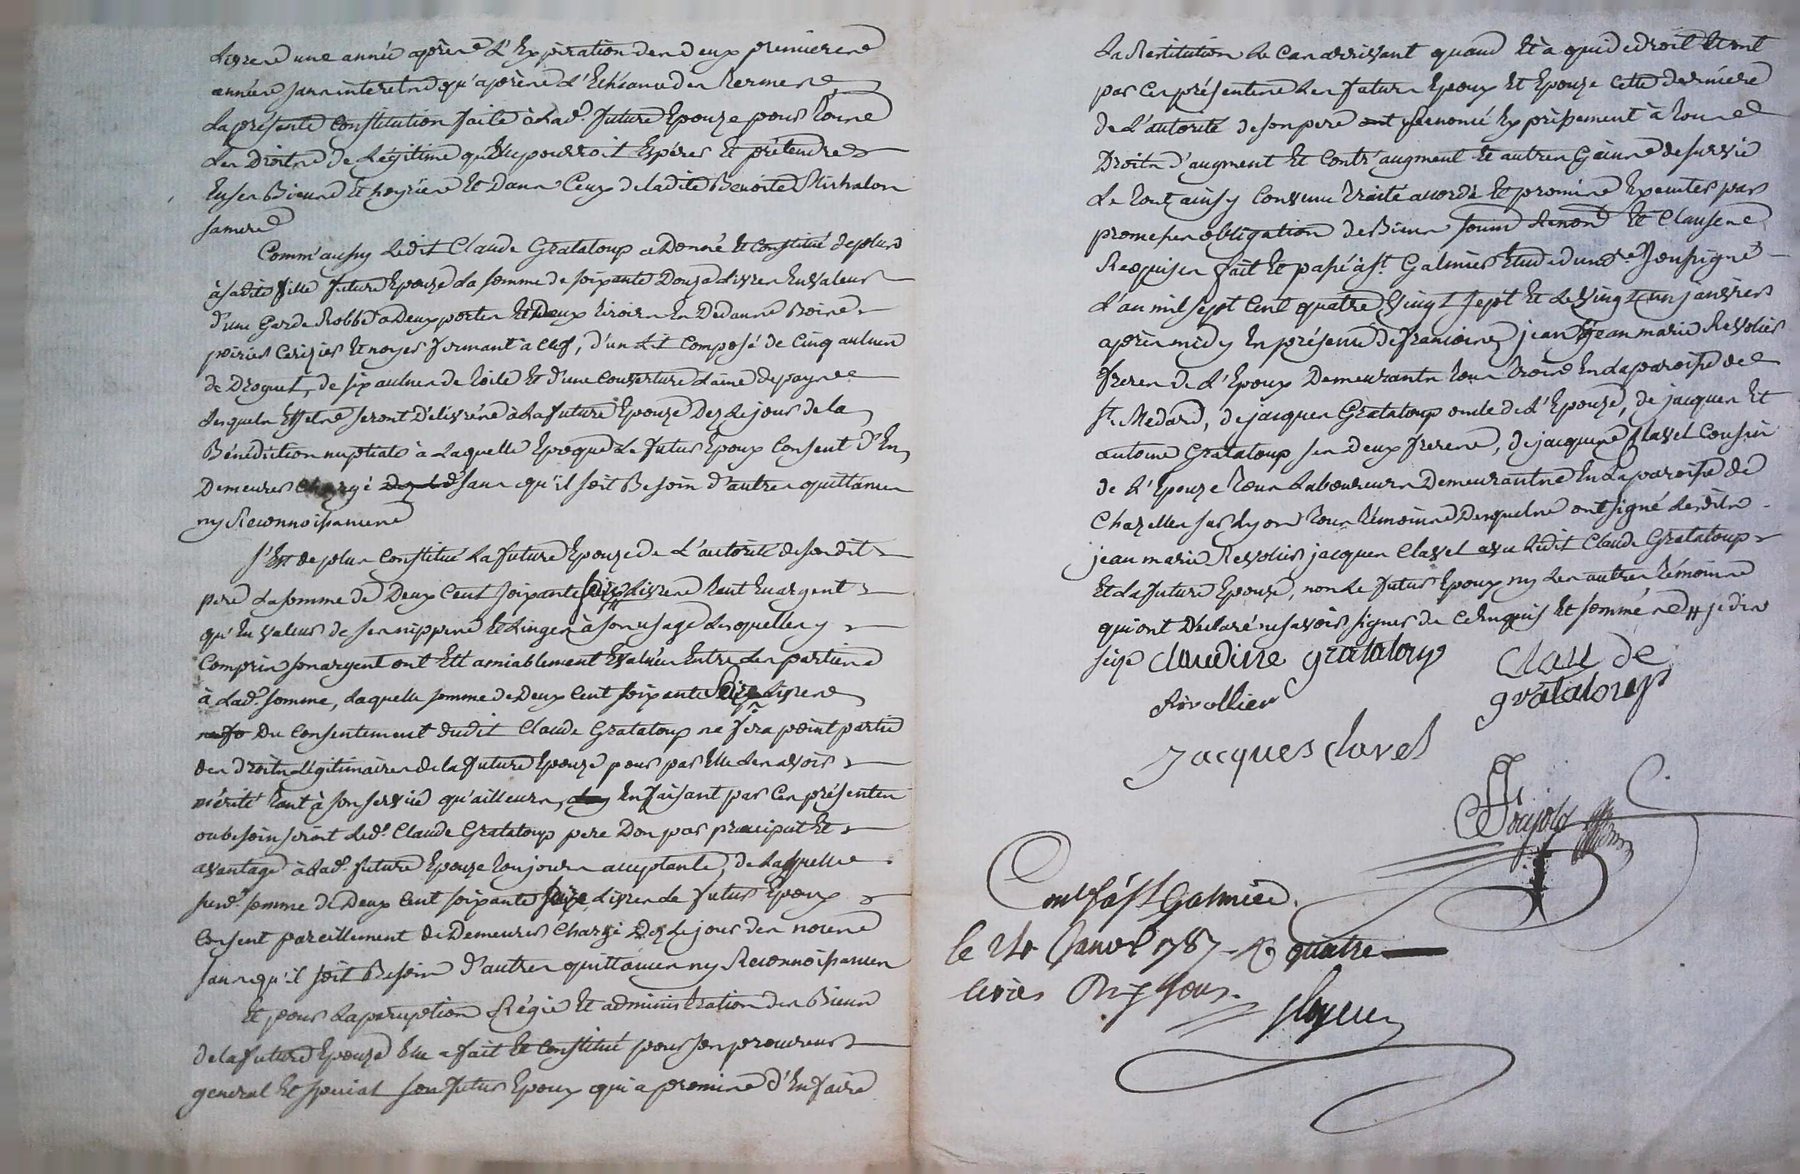 Livres une année après l'Expiration des deux premieres
années sans interets qu'après l'Echéance des termes
La présente Constitution faite à Lad.e future Epouze pour tous
Les Droits de Légitime qu'Elle pourroit Espérer Et prétendre
En ses Biens Et hoyries Et Dans Ceux de ladite Benoite Michalon
sa mere
Comm'aussy Ledit Claude Grataloup a Donné Et Constitué de plus
à sadite fille future Epouze La somme de soixante Douze Livres En valeur
d'une Garde Robbe a Deux portes Et Deux tiroirs En Dedans Boire
poirier Cerizier Et noyer fermant à Clef, d'un Lit Composé de Cinq aulnes
de Droguet, de six aulnes de toile Et d'une Couverture Laine de pays
Lesquels Effets seront Délivrés à La future Epouze Dez Le jour de la
Bénédiction nuptiale à Laquelle Epoque Le futur Epoux Consent d'En
Demeurer Chargé sans qu'il soit Besoin d'autres quittances
ny Reconnoissances
s'Est de plus Constitué La future Epouze de L'autorité de son dit
pere La somme de Deux Cent soixante seize Livres tant En argent
qu'En valeur de ses nippes Et Linges à son usage Lesquelles y
Compris son argent ont Eté amiablement Evalués Entre Les parties
à Lad.e somme, Laquelle somme de Deux Cent soixante seize Livres
Du Consentement dudit Claude Grataloup ne fera point partie
des droits Légitimaires de la future Epouze pour par Elle Les avoir
mérité tant à son service qu'ailleurs, En faisant par Ces présentes
ou besoin seroit Led.t Claude Grataloup pere Don par preciput Et
avantage à Lad.e future Epouze toujours acceptante, de Laquelle
susd.e somme de Deux Cent soixante seize Livres Le futur Epoux
Consent pareillement de Demeurer Chargé Dez Le jour des noces
sans qu'il soit Besoin d'autres quittances ny Reconnoissances
Et pour La perception Régie Et administration des Biens
de la future Epouze Elle a fait Et Constitué pour son procureur
general Et special son futur Epoux qui a promis d'En faire
La Restitution Le Cas arrivant quand Et à qui de droit Et ont
par Ces présentes Les futurs Epoux Et Epouze Cette derniere
de L'autorité de son pere Renoncé Expressement à tous
Droits d'augment Et Contr'augment Et autres Gains de survie
Le tout ainsy Convenu traité accordé Et promis Executer par
promesses obligation de Biens soumis Renon.s Et Clauses
Requises fait Et passé à S.t Galmier Etude du no.re soussigné
L'an mil sept Cent quatre vingt sept Et Le vingt un janvier
après midy En présence de françois, jean Et jean marie Revolier
freres de L'Epoux Demeurants tous trois En La paroisse de
S.t Medard, de jacques Grataloup oncle de L'Epouze, de jacques Et
antoine Grataloup ses Deux freres, de jacques Clavel Cousin
de L'Epouze tous Laboureurs Demeurants En La paroisse de
Chazelles sur Lyon tous témoins Desquels ont signé Lesdits
jean marie Revolier jacques Clavel avec Ledit Claude Grataloup
Et La future Epouze, non Le futur Epoux ny Les autres témoins
qui ont Déclaré ne savoir signer de Ce Enquis Et sommés // je dis
seize claudine grataloup clau de
Rivollier grataloup
Jacques clavel
Pupolo
Con.lé à S.t Galmier
le 24 Janv.r 1787 - R. quatre
livres Dix sous.